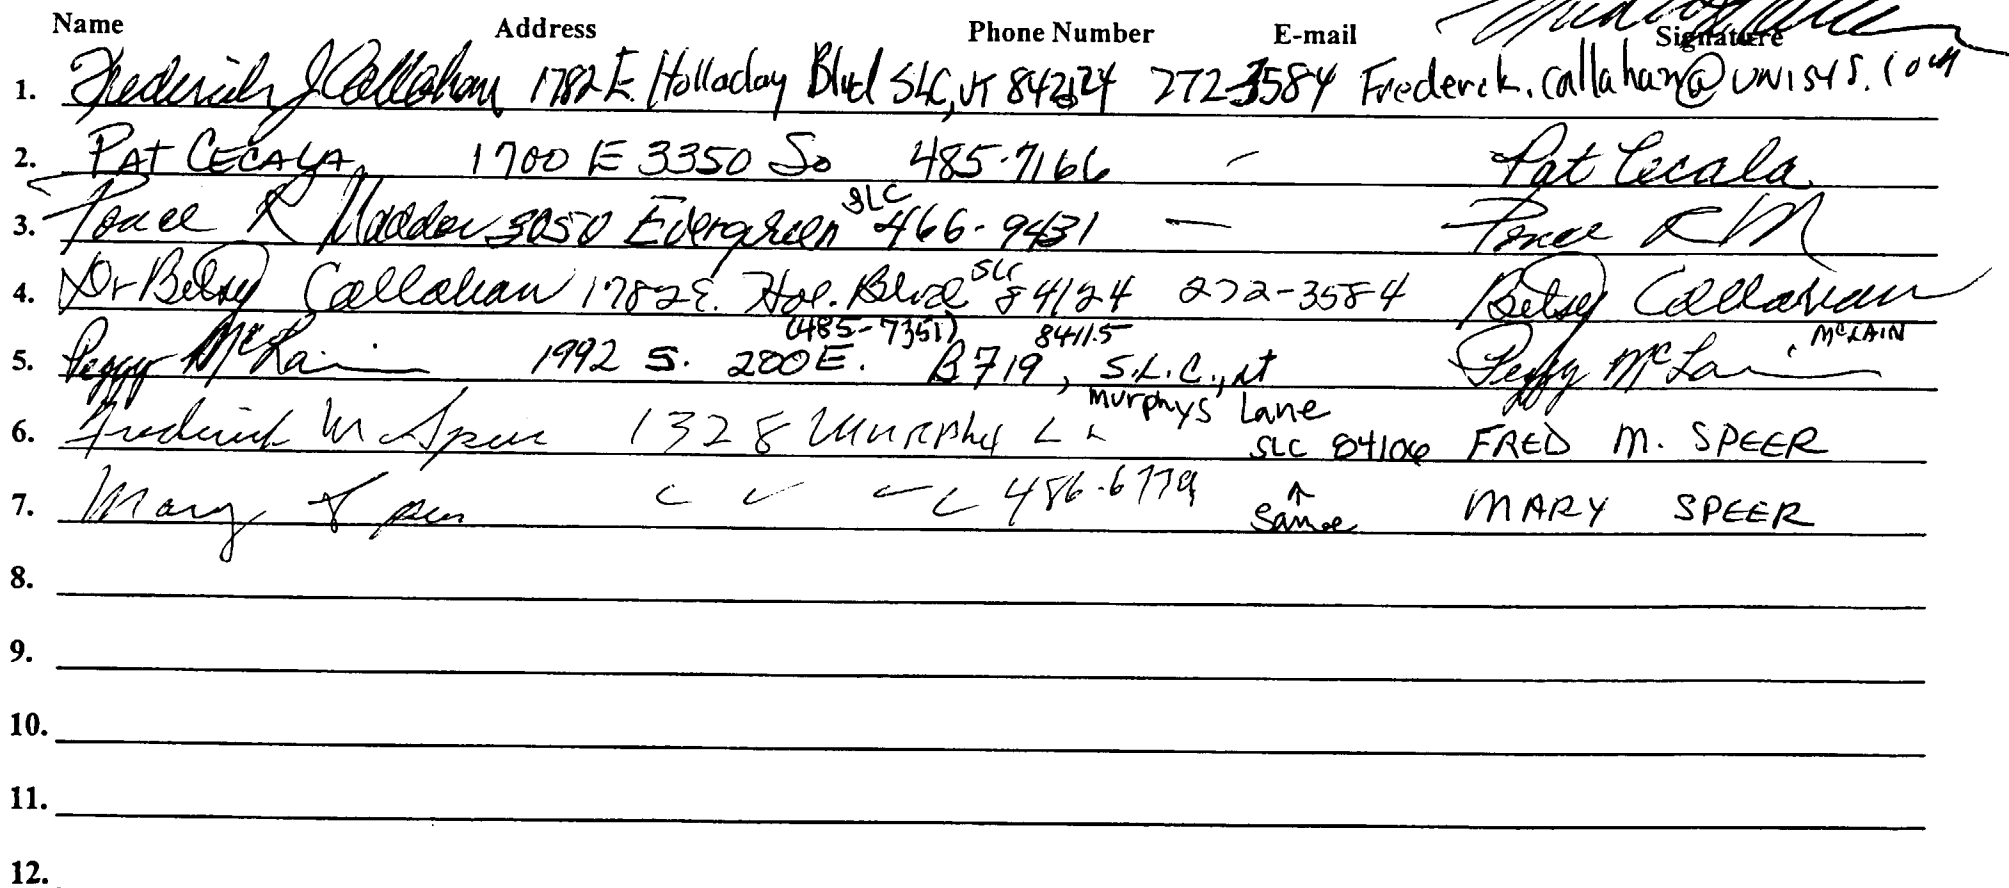 Name Address Phone Number E-mail Signature
1. Frederick J Callahan 1782 E. Holladay Blvd SLC, UT 84124 272-3584 Frederick.callahan@unisys.com
2. PAT CECALA 1700 E 3350 So 485-7166 - Pat Cecala
SLC
3. R Maddox 3050 Evergreen 466-9431 — R M
SLC
4. Dr Betsy Callahan 1782 E. Hol. Blvd 84124 272-3584 Betsy Callahan
(485-7351) 84115 McLAIN
5. Peggy McLain 1992 S. 200 E. B719, S.L.C., ut Peggy McLain
murphys Lane
6. Frederick M Speer 1328 Murphy Ln SLC 84106 FRED M. SPEER
7. Mary Speer 486-6779 ↑ same MARY SPEER
8.
9.
10.
11.
12.